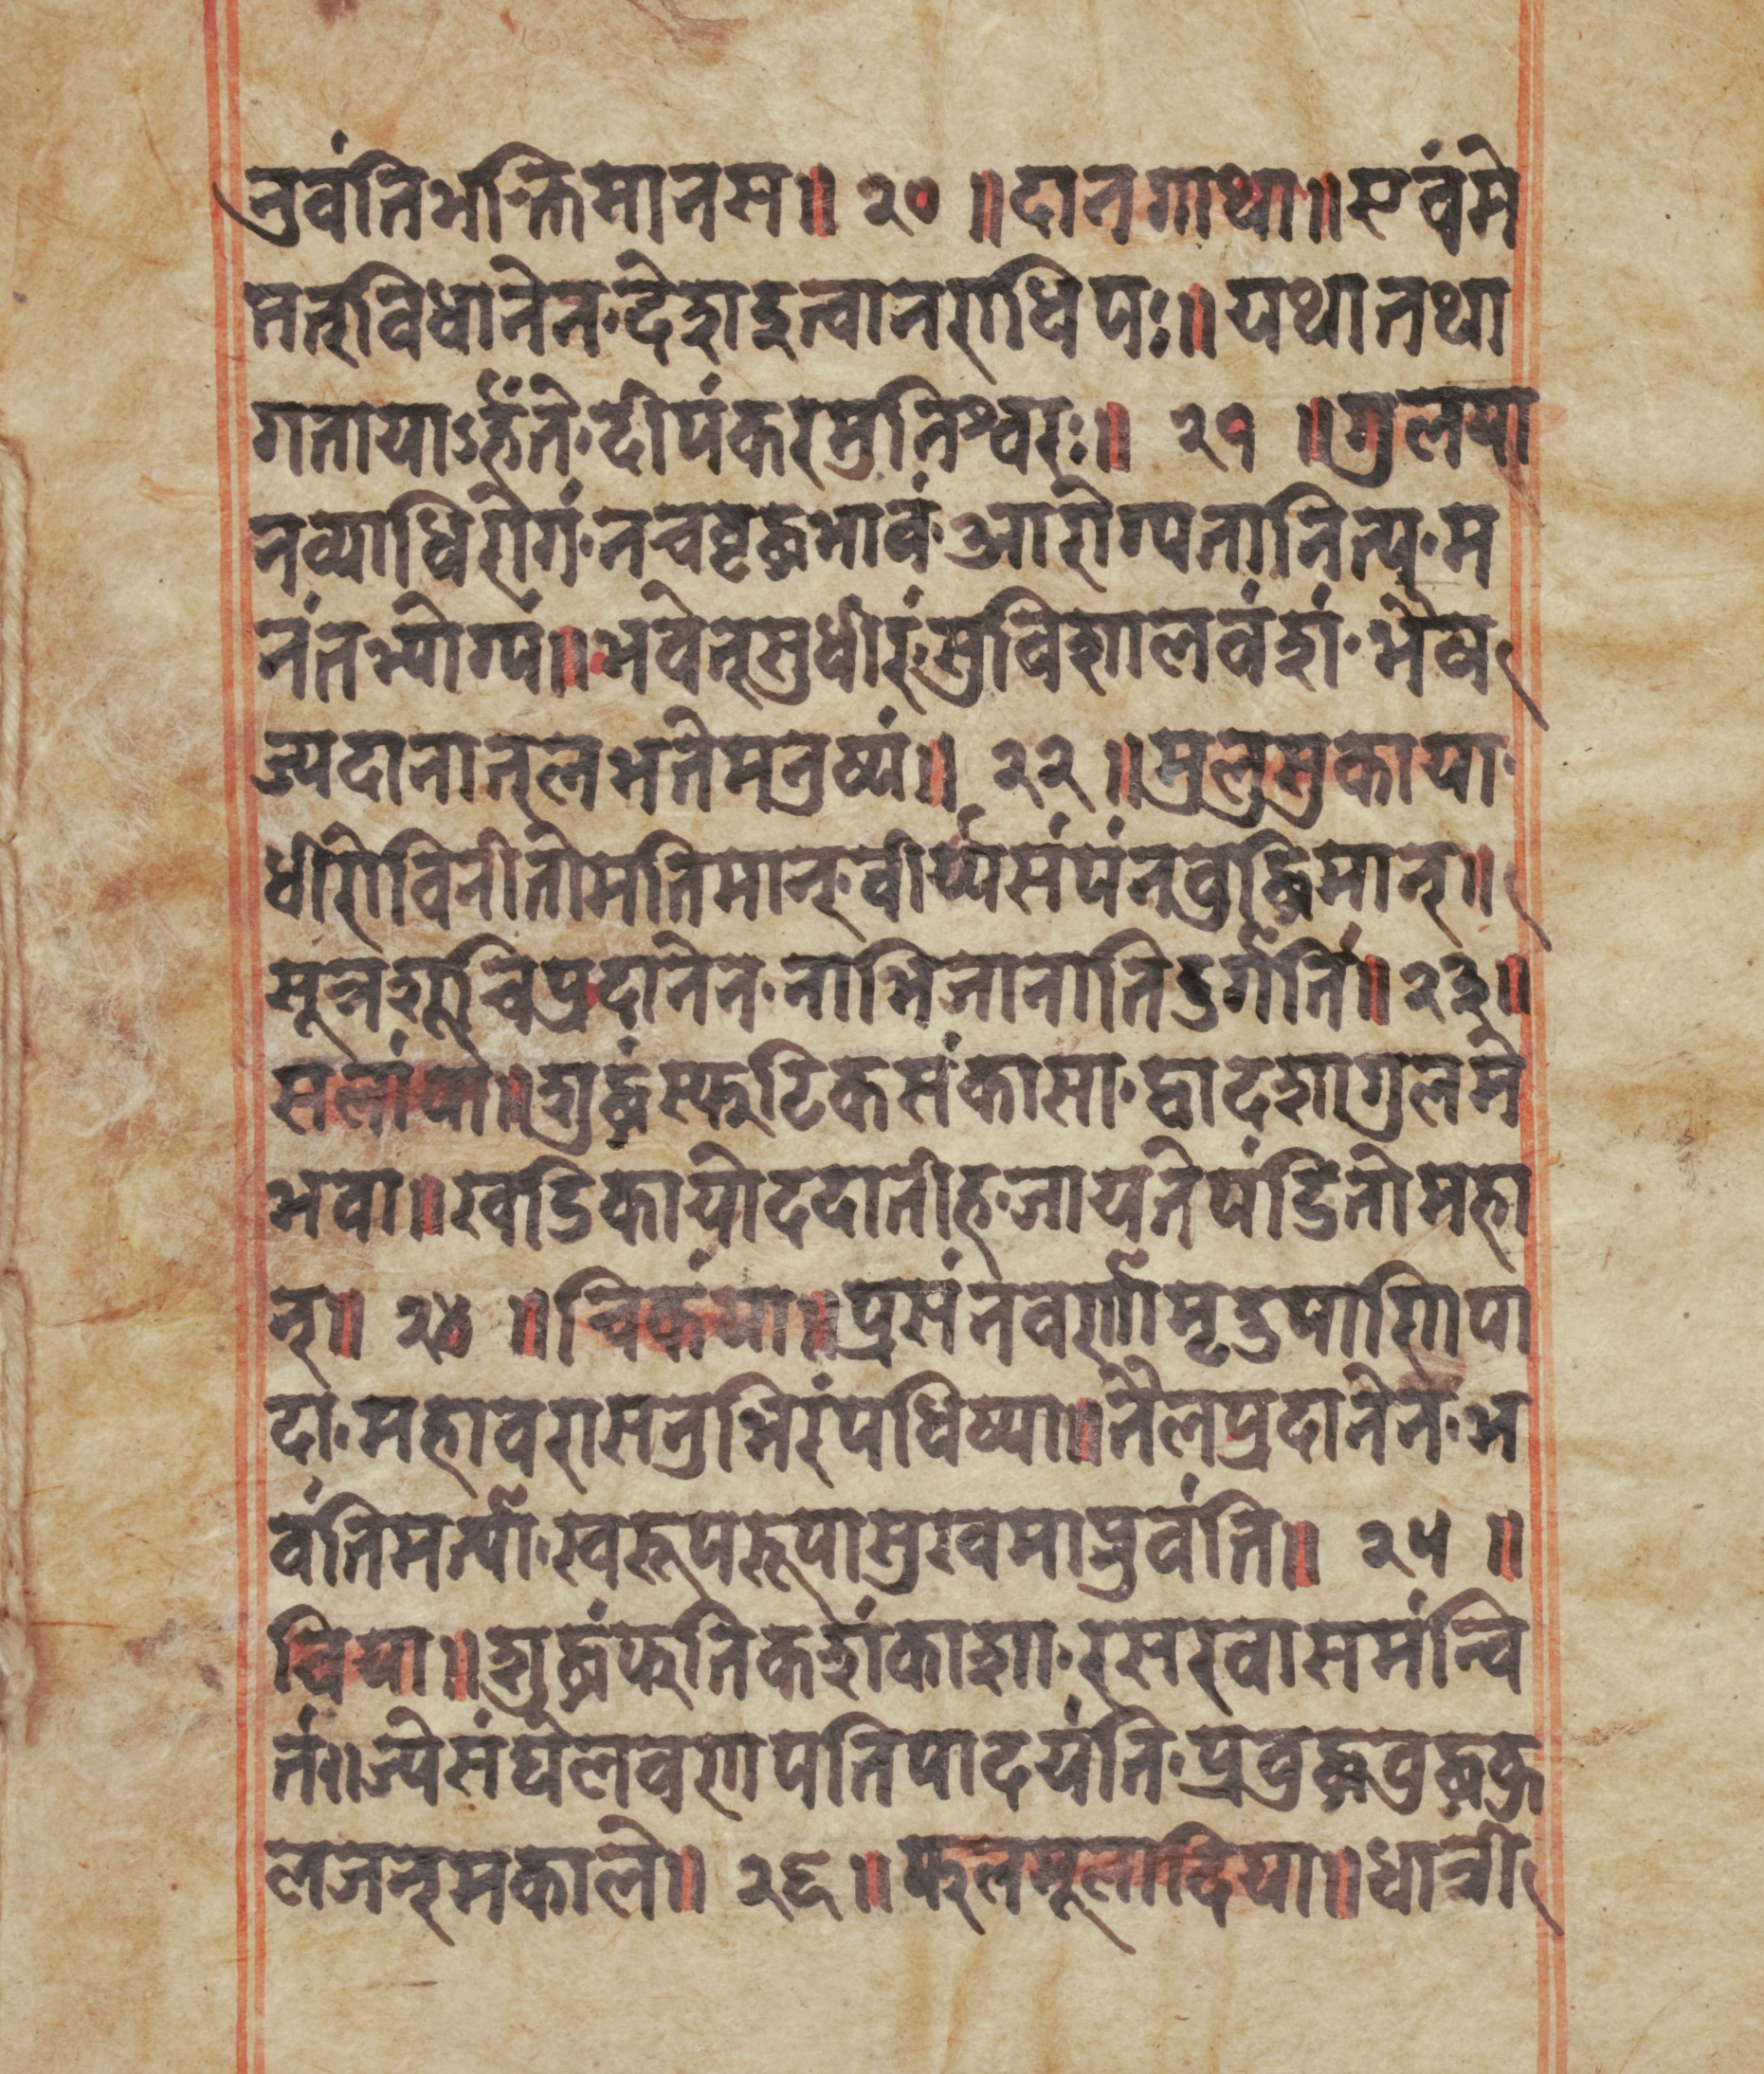 नुवंतिभक्तिमानस॥ २० ॥दानगाथा॥एवंमे
मनुविधानेन·देशदुत्वानराधिपः॥यथातथा
गतायाऽर्हंते·दीपंकरमुनिश्वरः॥ २१ ॥मुलया
नव्याधिरोगं·नचवृद्धभावं·आरोग्यतानित्य·म
नंतभ्योग्यं॥भवेत्सुधीरं·सुविशालवंशं·भैष
ज्यदानात्लभतेमनुष्यं॥ २२ ॥मुलमुकाया·
धीरोविनीतोमतिमान्·वीर्य्यसंपंनवुद्धिमान्॥
मूत्रशूचिप्रदानेन·नाभिजानातिदुर्गतिं॥२३॥
सलांका॥शुद्धंस्फटिकसंकासा·द्वादशागुलमे
भवा॥खडिकायोददातीह·जायतेपंडितोमहा
न्॥ २४ ॥चिकंया॥प्रसंनवर्णामृदुपाणिपा
दा·महावरासतुभिरंपधिष्या॥तैलप्रदानेन·भ
वंतिमर्त्या·स्वरूपरूपासुखमाप्नुवंति॥ २५ ॥
चिया॥शुद्धंफतिकशंकाशा·रसरवासमंन्वि
तं॥ज्येसंघेलवणपतिपादयंति·प्रवुद्धवुद्धकु
लजन्मकाले॥ २६॥फलमूलादिया॥धात्री